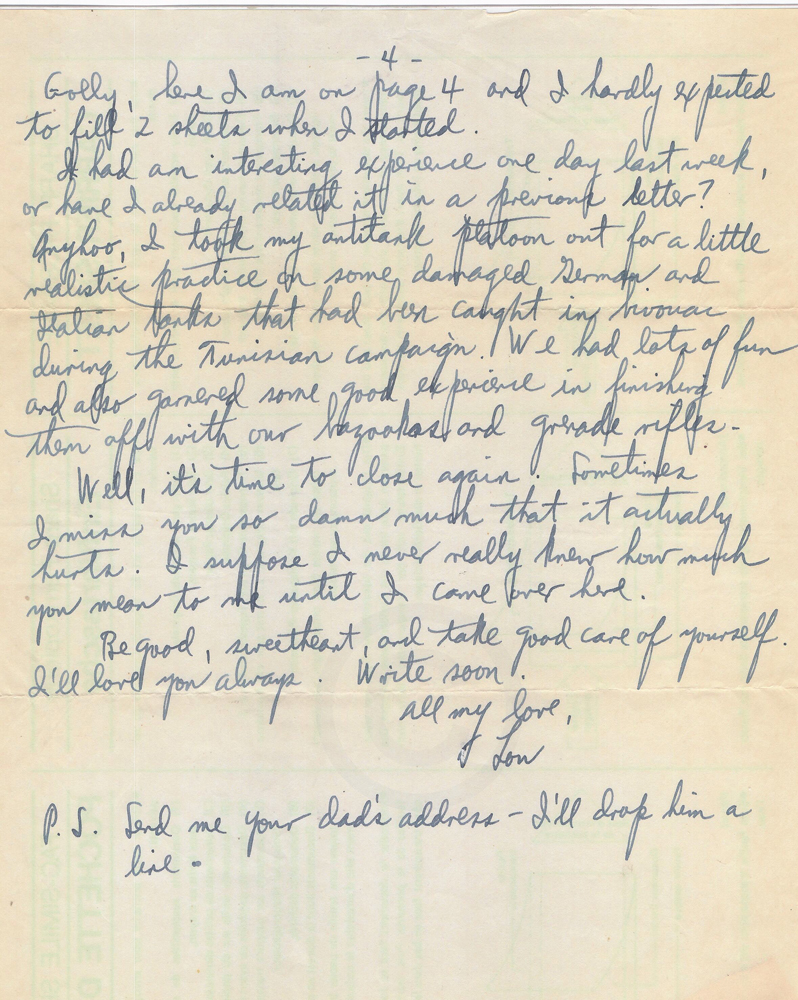 - 4 -
Golly, here I am on page 4 and I hardly expected
to fill 2 sheets when I started.
I had an interesting experience one day last week,
or have I already related it in a previous letter?
Anyhoo, I took my antitank platoon out for a little
realistic practice on some damaged German and
Italian tanks that had been caught in bivouac
during the Tunisian campaign. We had lots of fun
and also garnered some good experience in finishing
them off with our bazookas and grenade rifles.
Well, it's time to close again. Sometimes
I miss you so damn much that it actually
hurts. I suppose I never really knew how much
you mean to me until I came over here.
Be good, sweetheart, and take good care of yourself.
I'll love you always. Write soon.
All my love,
Lou
P.S. Send me your dad's address - I'll drop him a
line -